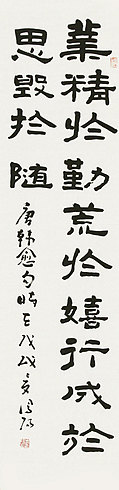 業精於勤荒於嬉行成於
思毀於随
唐韓愈句時壬戌